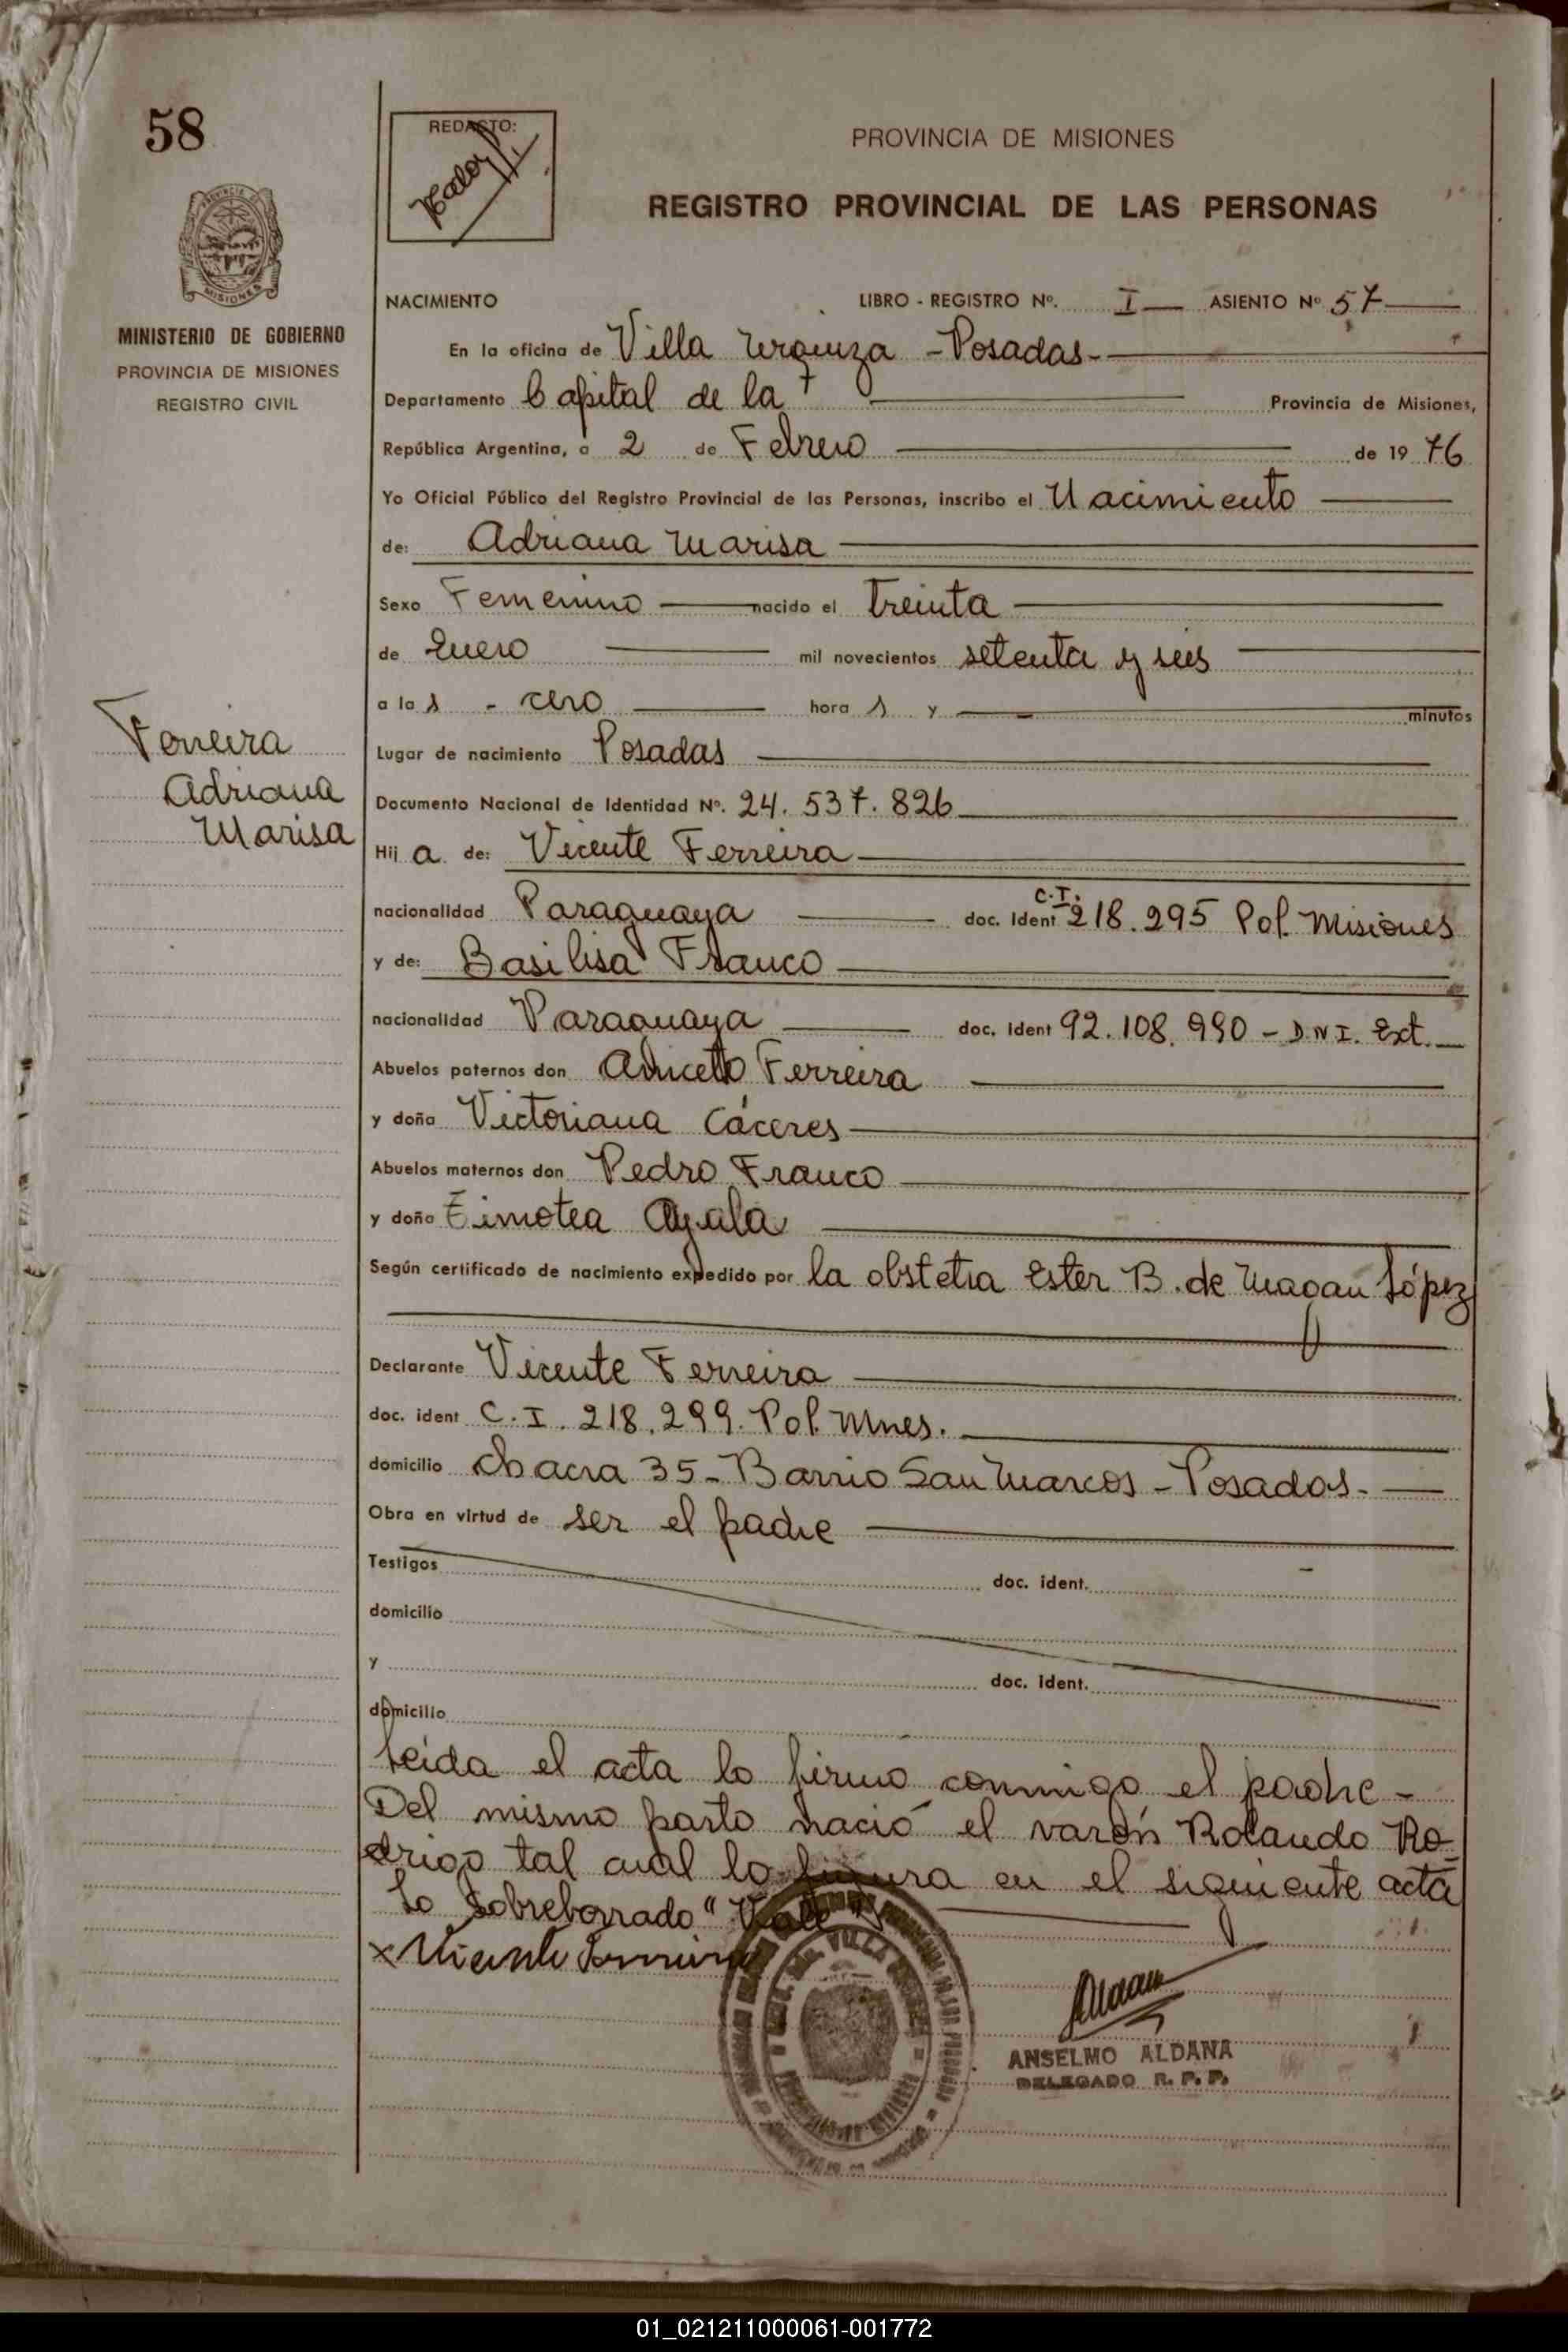 58
REDACTO:
PROVINCIA DE MISIONES
REGISTRO PROVINCIAL DE LAS PERSONAS
MISIONES
MINISTERIO DE GOBIERNO
PROVINCIA DE MISIONES
REGISTRO CIVIL
NACIMIENTO LIBRO - REGISTRO Nº. I ASIENTO Nº 57
En la oficina de Villa Urquiza - Posadas -
Departamento Capital de la Provincia de Misiones,
República Argentina, a 2 de Febrero de 1976
Yo Oficial Público del Registro Provincial de las Personas, inscribo el Nacimiento
de: Adriana Marisa
Sexo Femenino nacido el Treinta
de Enero mil novecientos setenta y seis
a las - cero horas y minutos
Ferreira
Adriana
Marisa
Lugar de nacimiento Posadas
Documento Nacional de Identidad Nº. 24.537.826
Hija de: Vicente Ferreira
nacionalidad Paraguaya doc. Ident C.I. 218.295 Pol. Misiones
y de: Basilisa Franco
nacionalidad Paraguaya doc. Ident 92.108.990 - D N I. Ext.
Abuelos paternos don Aniceto Ferreira
y doña Victoriana Cáceres
Abuelos maternos don Pedro Franco
y doña Timotea Ayala
Según certificado de nacimiento expedido por la obstetra Ester B. de Magan López
Declarante Vicente Ferreira
doc. ident C.I. 218.299. Pol. Mnes.
domicilio Chacra 35 - Barrio San Marcos - Posadas. -
Obra en virtud de ser el padre
Testigos doc. ident.
domicilio
y doc. ident.
domicilio
Leída el acta lo firmó conmigo el padre -
Del mismo parto nació el varón Rolando Ro=
drigo tal cual lo figura en el siguiente acta
Lo Sobreborrado "Vale"
x Vicente Ferreira
VILLA
ANSELMO ALDANA
DELEGADO R. P. P.
01_021211000061-001772